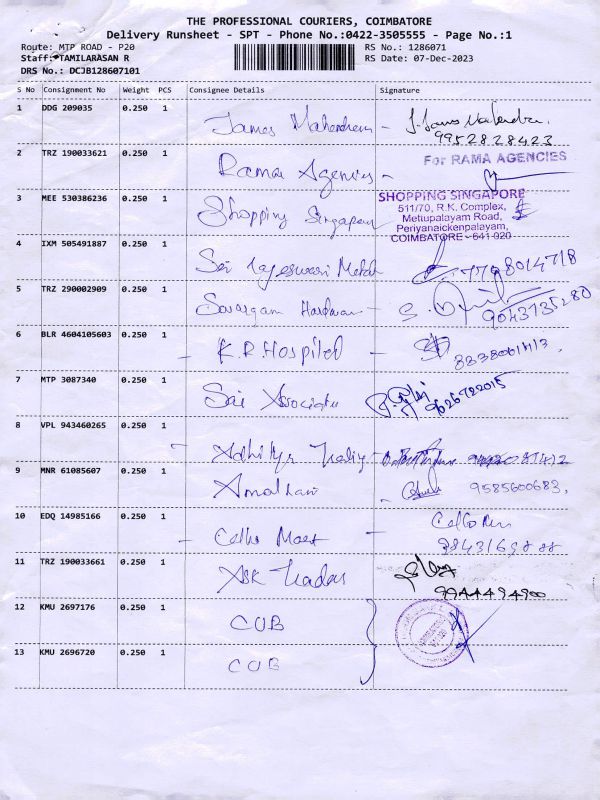 THE PROFESSIONAL COURIERS, COIMBATORE
Delivery Runsheet - SPT - Phone No.:0422-3505555 - Page No.:1
Route: MTP ROAD - P20 RS No.: 1286071
Staff: TAMILARASAN R RS Date: 07-Dec-2023
DRS No.: DCJB128607101
S No Consignment No Weight PCS Consignee Details Signature
1 DDG 209035 0.250 1 James Mahendran -
9952828423
2 TRZ 190033621 0.250 1 Rama Agencies -
For RAMA AGENCIES
3 MEE 530386236 0.250 1 Shopping Singapore
SHOPPING SINGAPORE
511/70, R.K. Complex,
Mettupalayam Road,
Periyanaickenpalayam,
COIMBATORE - 641 020
4 IXM 505491887 0.250 1 Sri Rajeswari Metal
7708014718
5 TRZ 290002909 0.250 1 Hardware -
9043735280
6 BLR 4604105603 0.250 1 - K.R.Hospital -
7 MTP 3087340 0.250 1 Sai Associates
9626922015
8 VPL 943460265 0.250 1
9 MNR 61085607 0.250 1 -
9585600683,
10 EDQ 14985166 0.250 1 - -
11 TRZ 190033661 0.250 1 Ask Traders
9944494900
12 KMU 2697176 0.250 1 CUB
13 KMU 2696720 0.250 1 CUB